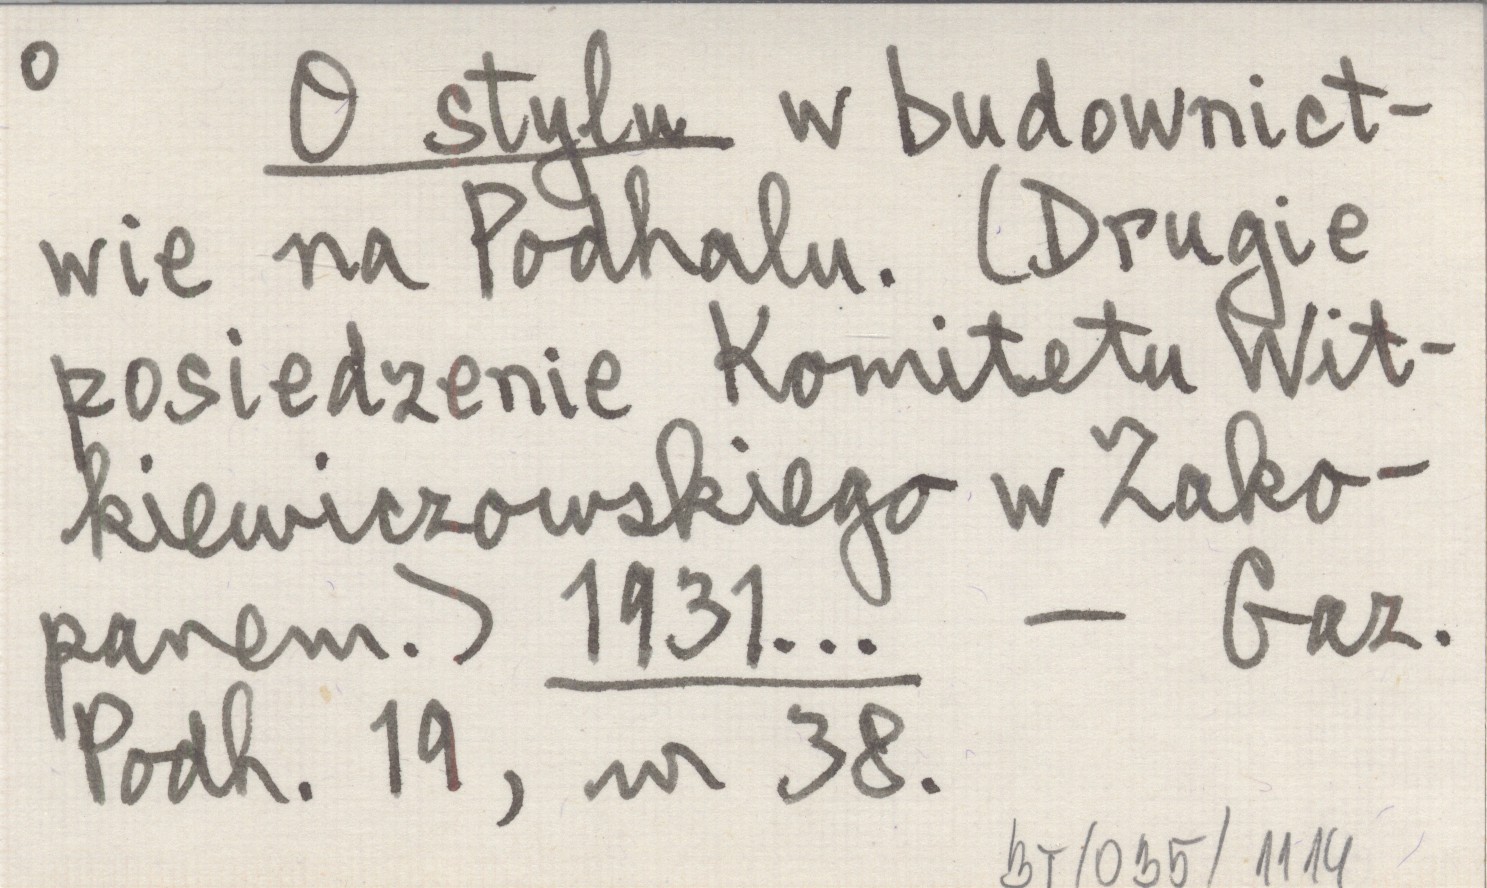 o O stylu w budownict-
wie na Podhalu. (Drugie
posiedzenie Komitetu Wit-
kiewiczowskiego w Zako-
panem.) 1931... — Gaz.
Podh. 19, nr 38.
BT/035/1114